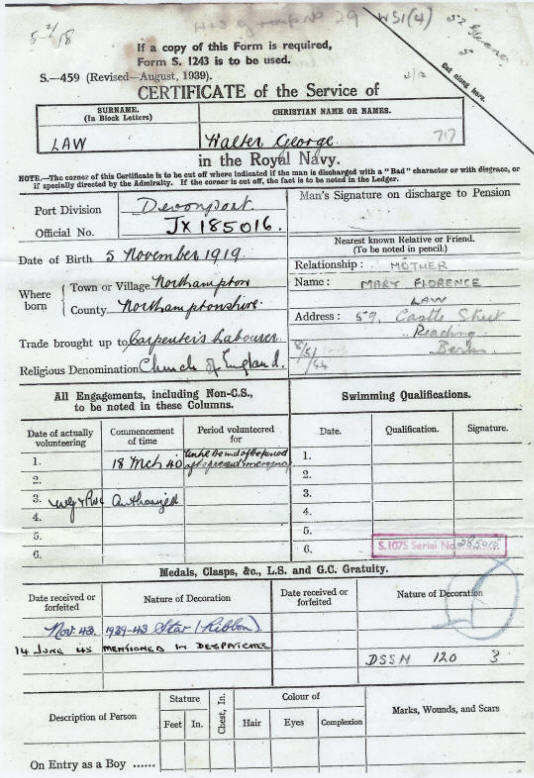 5 2/18
29 WS1(4)
If a copy of this Form is required,
Form S. 1243 is to be used.
S.—459 (Revised—August, 1939).
Cut along here.
CERTIFICATE of the Service of
SURNAME.
(In Block Letters)
CHRISTIAN NAME OR NAMES.
LAW
Walter George
717
in the Royal Navy.
NOTE.—The corner of this Certificate is to be cut off where indicated if the man is discharged with a "Bad" character or with disgrace, or
if specially directed by the Admiralty. If the corner is cut off, the fact is to be noted in the Ledger.
Port Division Devonport
Official No. JX 185016.
Man's Signature on discharge to Pension
Date of Birth 5 November 1919.
Where born
Town or Village Northampton
County Northamptonshire.
Trade brought up to Carpenter's Labourer.
Religious Denomination Church of England.
Nearest known Relative or Friend.
(To be noted in pencil.)
Relationship: MOTHER
Name: MARY FLORENCE
LAW
Address: 59, Castle Street
Reading
Berks.
8/5/44
All Engagements, including Non-C.S.,
to be noted in these Columns.
Date of actually volunteering
Commencement of time
Period volunteered for
1. 18 Mch 40 Until the end of the period of the present emergency
2.
3. Authorized
4.
5.
6.
Swimming Qualifications.
Date. Qualification. Signature.
1.
2.
3.
4.
5.
6.
S.1075 Serial No.
Medals, Clasps, &c., L.S. and G.C. Gratuity.
Date received or forfeited
Nature of Decoration
Date received or forfeited
Nature of Decoration
Nov. 43. 1939-43 Star (Ribbon)
14 JUNE 45 MENTIONED IN DESPATCHES
DSSN 120 3
Description of Person
Stature
Feet In.
Chest, In.
Colour of
Hair Eyes Complexion
Marks, Wounds, and Scars
On Entry as a Boy ......